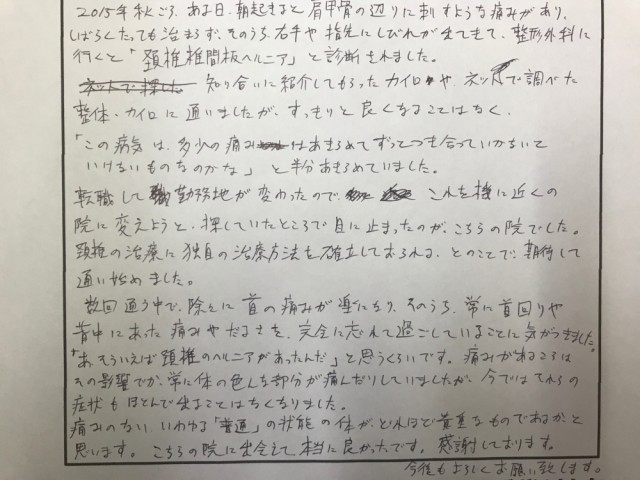 2015年秋ごろ、ある日、朝起きると肩甲骨の辺りに刺すような痛みがあり、
しばらくたっても治まらず、そのうち右手や指先にしびれが出てきて、整形外科に
行くと「頚椎椎間板ヘルニア」と診断されました。
ネットで探した 知り合いに紹介してもらったカイロや、ネットで調べた
整体・カイロに通いましたが、すっきりと良くなることはなく、
「この病気は、多少の痛みはあきらめてずっとつき合っていかないと
いけないものなのかな」と半分あきらめていました。
転職して勤務地が変わったので これを機に近くの
院に変えようと、探していたところで目に止まったのが、こちらの院でした。
頚椎の治療に独自の治療方法を確立しておられる、とのことで、期待して
通い始めました。
数回通う中で、除々に首の痛みが楽になり、そのうち、常に首回りや
背中にあった痛みやだるさを、完全に忘れて過ごしていることに気がつきました。
「あ、そういえば頚椎のヘルニアがあったんだ」と思うくらいです。痛みがあるころは
その影響でか、常に体の色んな部分が痛んだりしていましたが、今ではそれらの
症状もほとんど出ることはなくなりました。
痛みのない、いわゆる「普通」の状態の体が、どれほど貴重なものであるかと
思います。こちらの院に出会えて本当に良かったです。感謝しております。
今後もよろしくお願い致します。